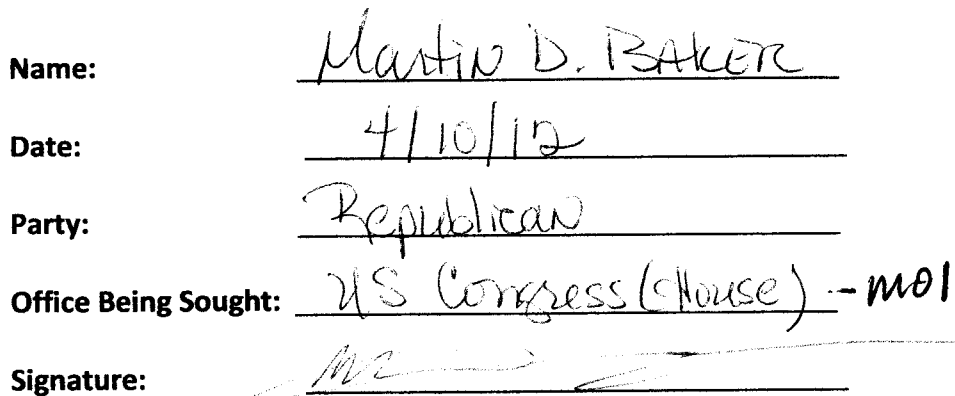 Name: Martin D. BAKER
Date: 4/10/12
Party: Republican
Office Being Sought: US Congress (House) - MO1
Signature: